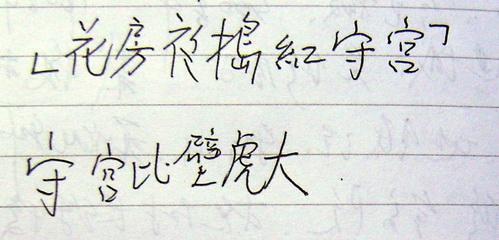 「花房夜搗紅守宮」
守宮比壁虎大